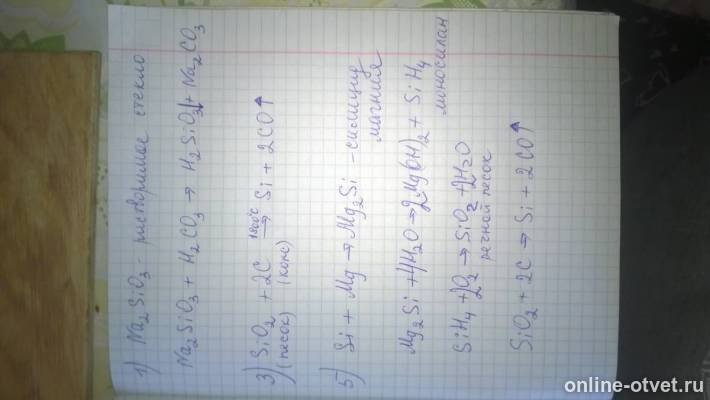 1) Na2SiO3 - растворимое стекло
Na2SiO3 + H2CO3 → H2SiO3↓ + Na2CO3
3) SiO2 + 2C 1800°C → Si + 2CO↑
(песок) (кокс)
5) Si + Mg → Mg2Si - силицид
магния
Mg2Si + 4H2O → 2Mg(OH)2 + SiH4
моносилан
SiH4 + 2O2 → SiO2 + 2H2O
речной песок
SiO2 + 2C → Si + 2CO↑
online-otvet.ru